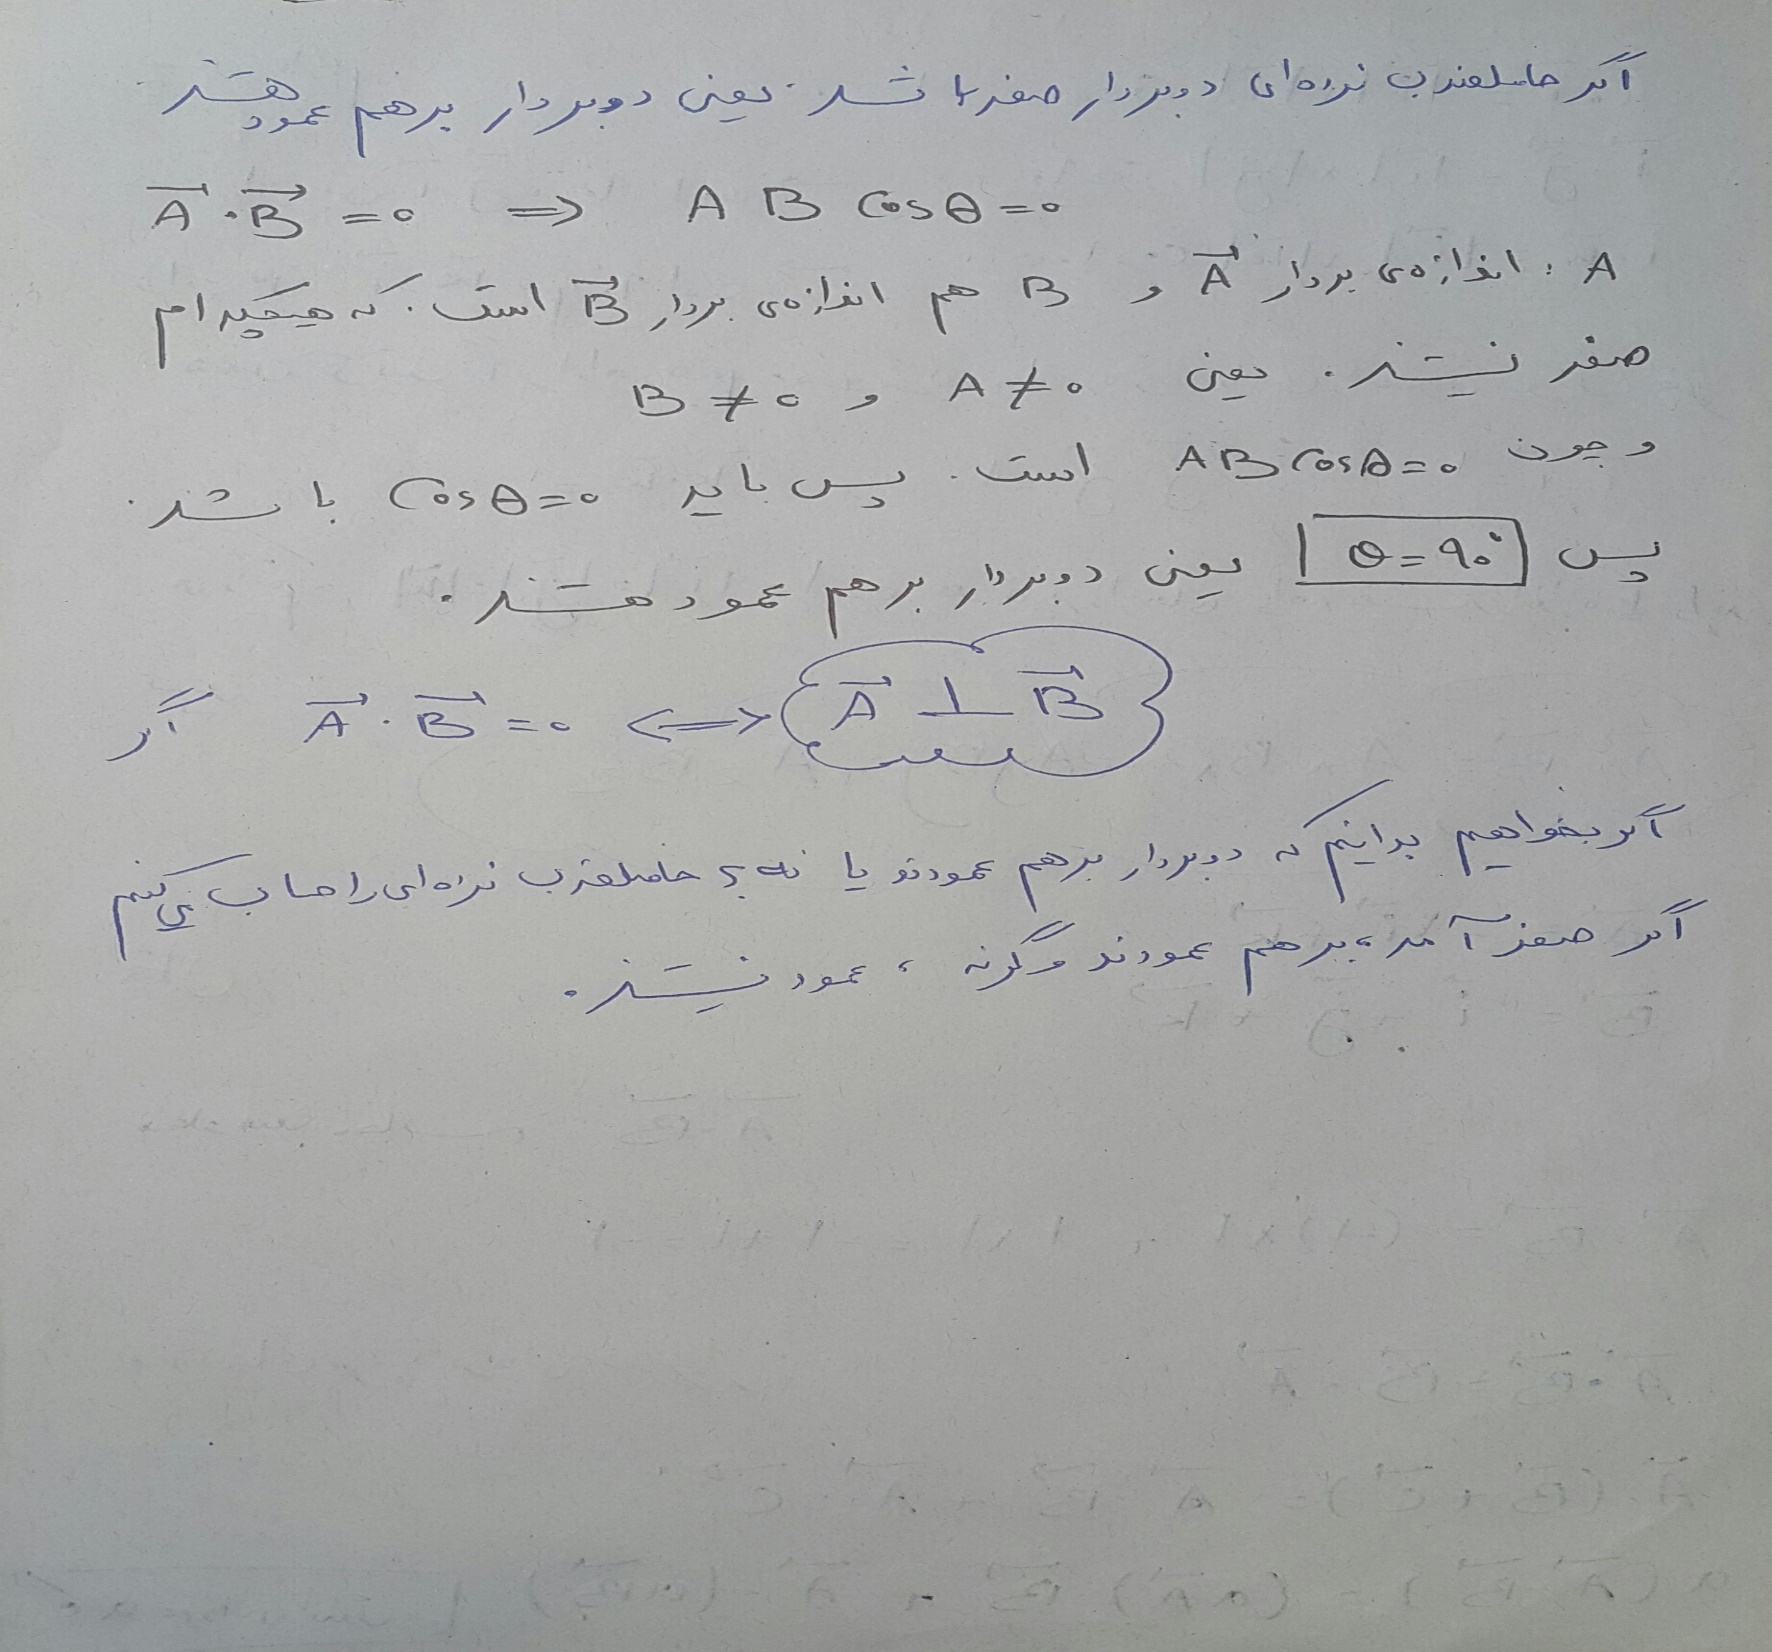 اگر حاصلضرب نرده‌ای دو بردار صفر باشد. یعنی دو بردار بر هم عمود هستند.
A⃗ · B⃗ = 0 ⇒ A B Cos θ = 0
A : اندازه‌ی بردار A⃗ و B هم اندازه‌ی بردار B⃗ است. که هیچکدام
صفر نیستند. یعنی A ≠ 0 و B ≠ 0
و چون AB Cos θ = 0 است. پس باید Cos θ = 0 باشد.
پس θ = 90° یعنی دو بردار بر هم عمود هستند.
اگر A⃗ · B⃗ = 0 ⟺ A⃗ ⊥ B⃗
اگر بخواهیم بدانیم که دو بردار بر هم عمودند یا نه؟ حاصلضرب نرده‌ای را حساب می‌کنیم
اگر صفر آمد، بر هم عمودند وگرنه، عمود نیستند.